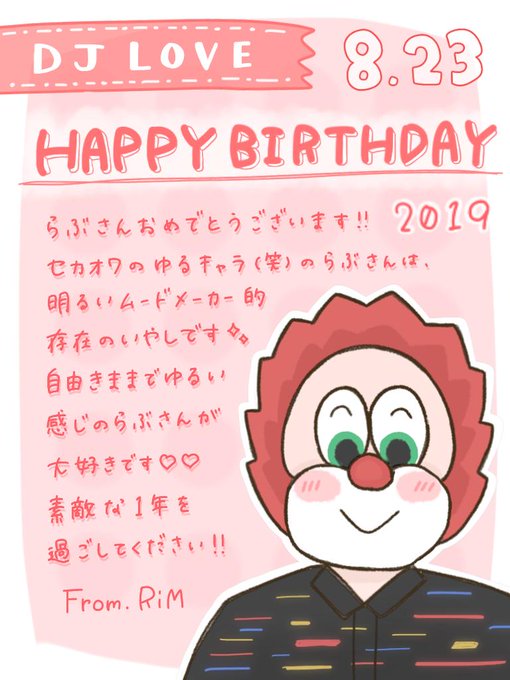 DJ LOVE
8.23
HAPPY BIRTHDAY
2019
らぶさんおめでとうございます!!
セカオワのゆるキャラ(笑)のらぶさんは、
明るいムードメーカー的
存在のいやしです✨
自由きままでゆるい
感じのらぶさんが
大好きです♡♡
素敵な1年を
過ごしてください!!
From. RiM